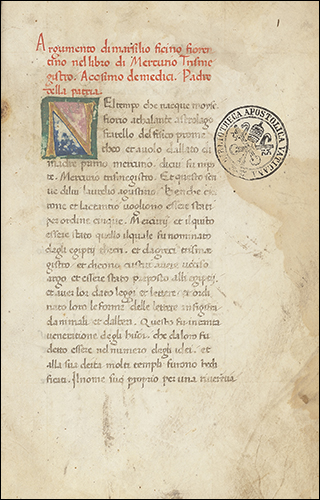 1
Argumento di marsilio ficino fioren
tino nel libro di Mercurio Trisme
gistro. A cosimo de medici. Padre
della patria.
El tempo che nacque moyse
fiorio athalante astrologo
fratello del fisico prome
theo et auolo dallato di
madre
mercurio. di cui fu nipo
te. Mercurio trismegistro. Et questo scri
ve diliu laurelio agustino
et lactantio vogliono essere stati
per ordine cinque. Mercurii et il quito
essere stato quello il quale fu nominato
dagli egyptii et da greci trismæ
gistro et dicono
argo et essere stato preposto alli egyptii.
et aver loro dato leggi et lettere
nato loro le forme delle lettere in figura
danimali et dalberi. Questo fu in tanta
veneratione degli huomini. che da loro fu
detto essere nel numero degli idei. et
alla sua deita molti templi furono hedi
ficati. Il nome suo proprio per una riverentia
BIBLIOTHECA APOSTOLICA VATICANA